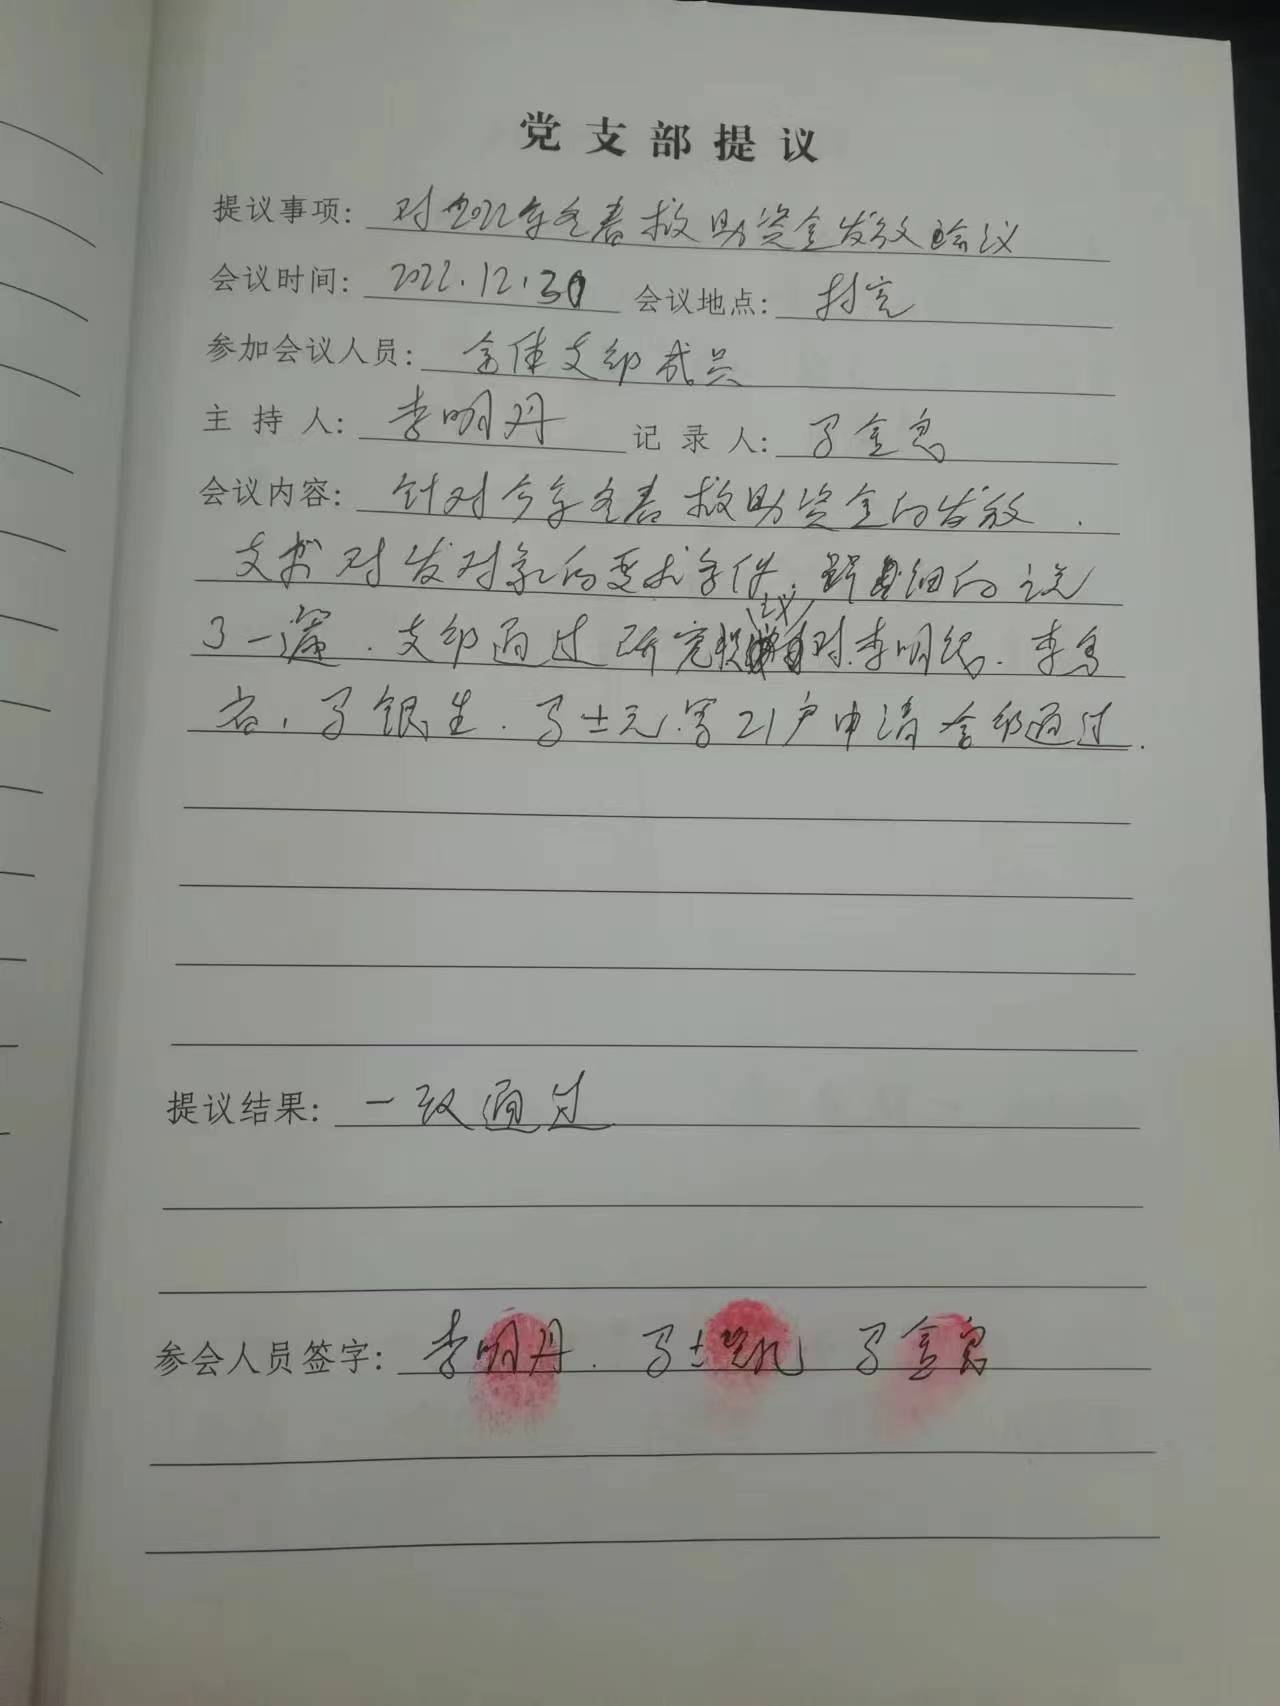 党支部提议
提议事项：对2022年冬春救助资金发放会议
会议时间：2022.12.30 会议地点：村充
参加会议人员：全体支部成员
主持人：李明丹 记录人：马金忠
会议内容：针对今年冬春救助资金的发放．
支书对发对象的要求条件，详细的说
了一遍．支部通过研究 对李明 ．李
．马银生．马士元等21户申请全部通过．
提议结果：一致通过
参会人员签字：李明丹．马士 马金忠